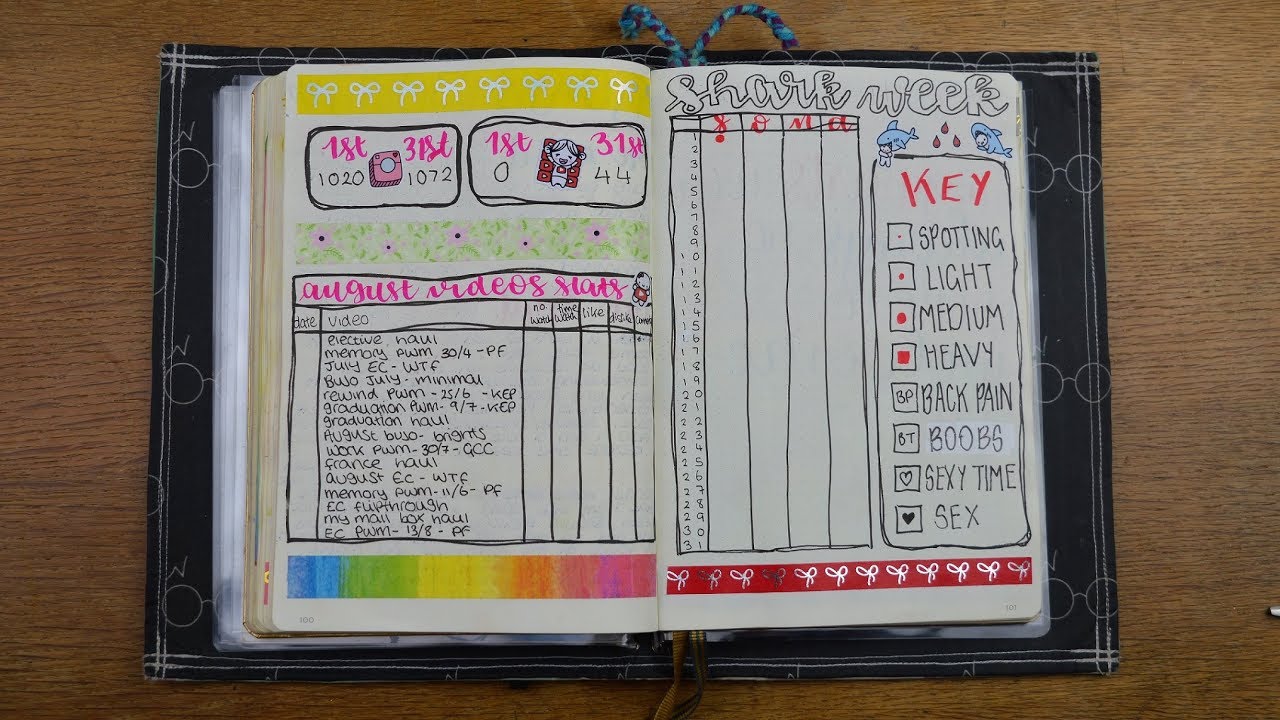 1st 31st
1020 1072
1st 31st
0 44
august videos stats
date video no. watch time watch like dislike
elective haul
memory PWM 30/4 - PF
July EC - WTF
BUJO July - minimal
rewind PWM - 25/6 - KEP
graduation PWM - 9/7 - KEP
graduation haul
August bujo - brights
work PWM - 30/7 - GCC
france haul
august EC - WTF
memory PWM - 11/6 - PF
EC flipthrough
my mail box haul
EC PWM - 13/8 - PF
100
shark week
S O N D
1
2
3
4
5
6
7
8
9
10
11
12
13
14
15
16
17
18
19
20
21
22
23
24
25
26
27
28
29
30
31
KEY
SPOTTING
LIGHT
MEDIUM
HEAVY
BP BACK PAIN
BT BOOBS
SEXY TIME
SEX
101